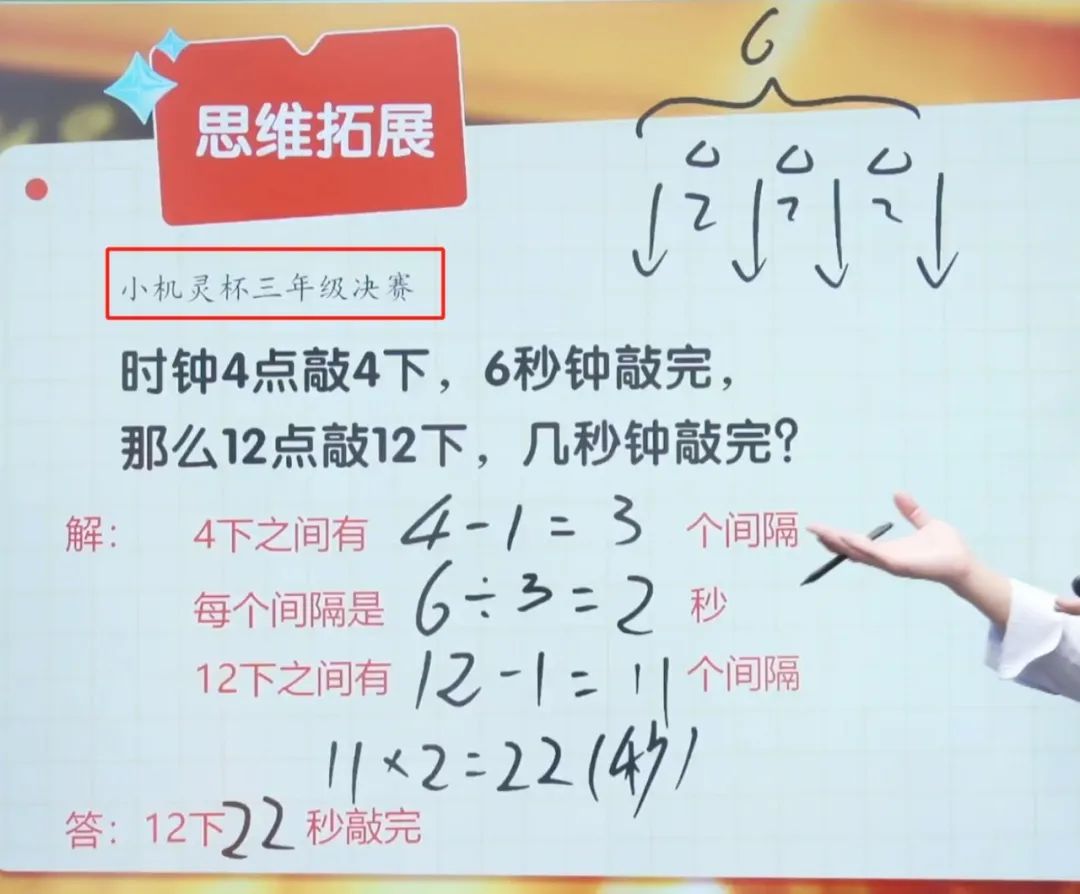 思维拓展
6
2 2 2
小机灵杯三年级决赛
时钟4点敲4下，6秒钟敲完，
那么12点敲12下，几秒钟敲完？
解： 4下之间有 4-1=3 个间隔
每个间隔是 6÷3=2 秒
12下之间有 12-1=11 个间隔
11×2=22(秒)
答：12下22秒敲完